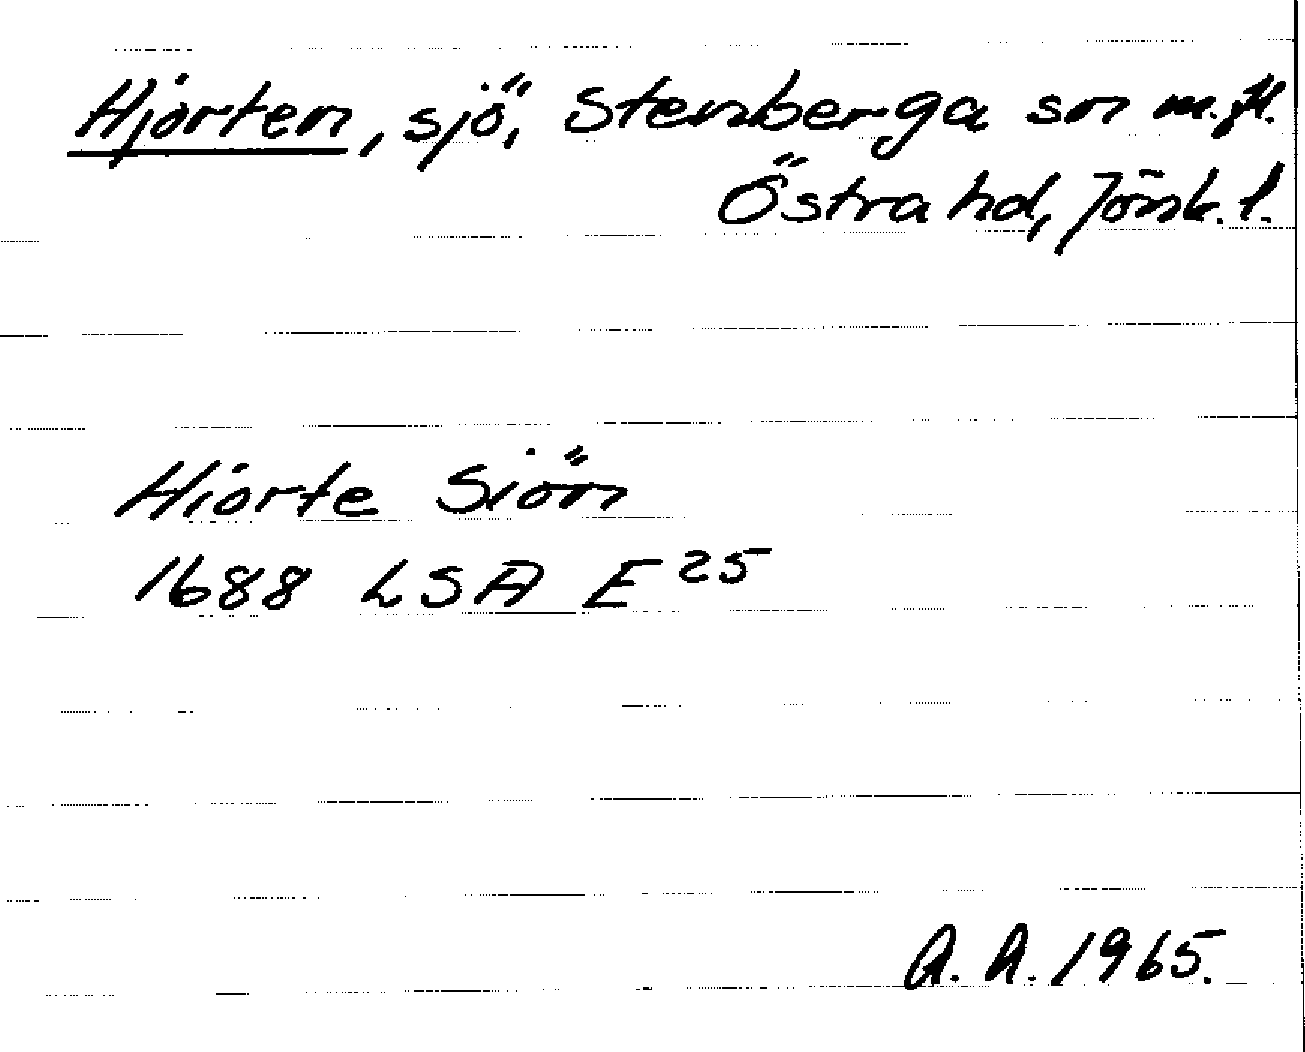 Hjorten, sjö, Stenberga sn m.fl.
Östra hd, Jönk. l.
Hiorte Siön
1688 LSA E 25
A. A. 1965.